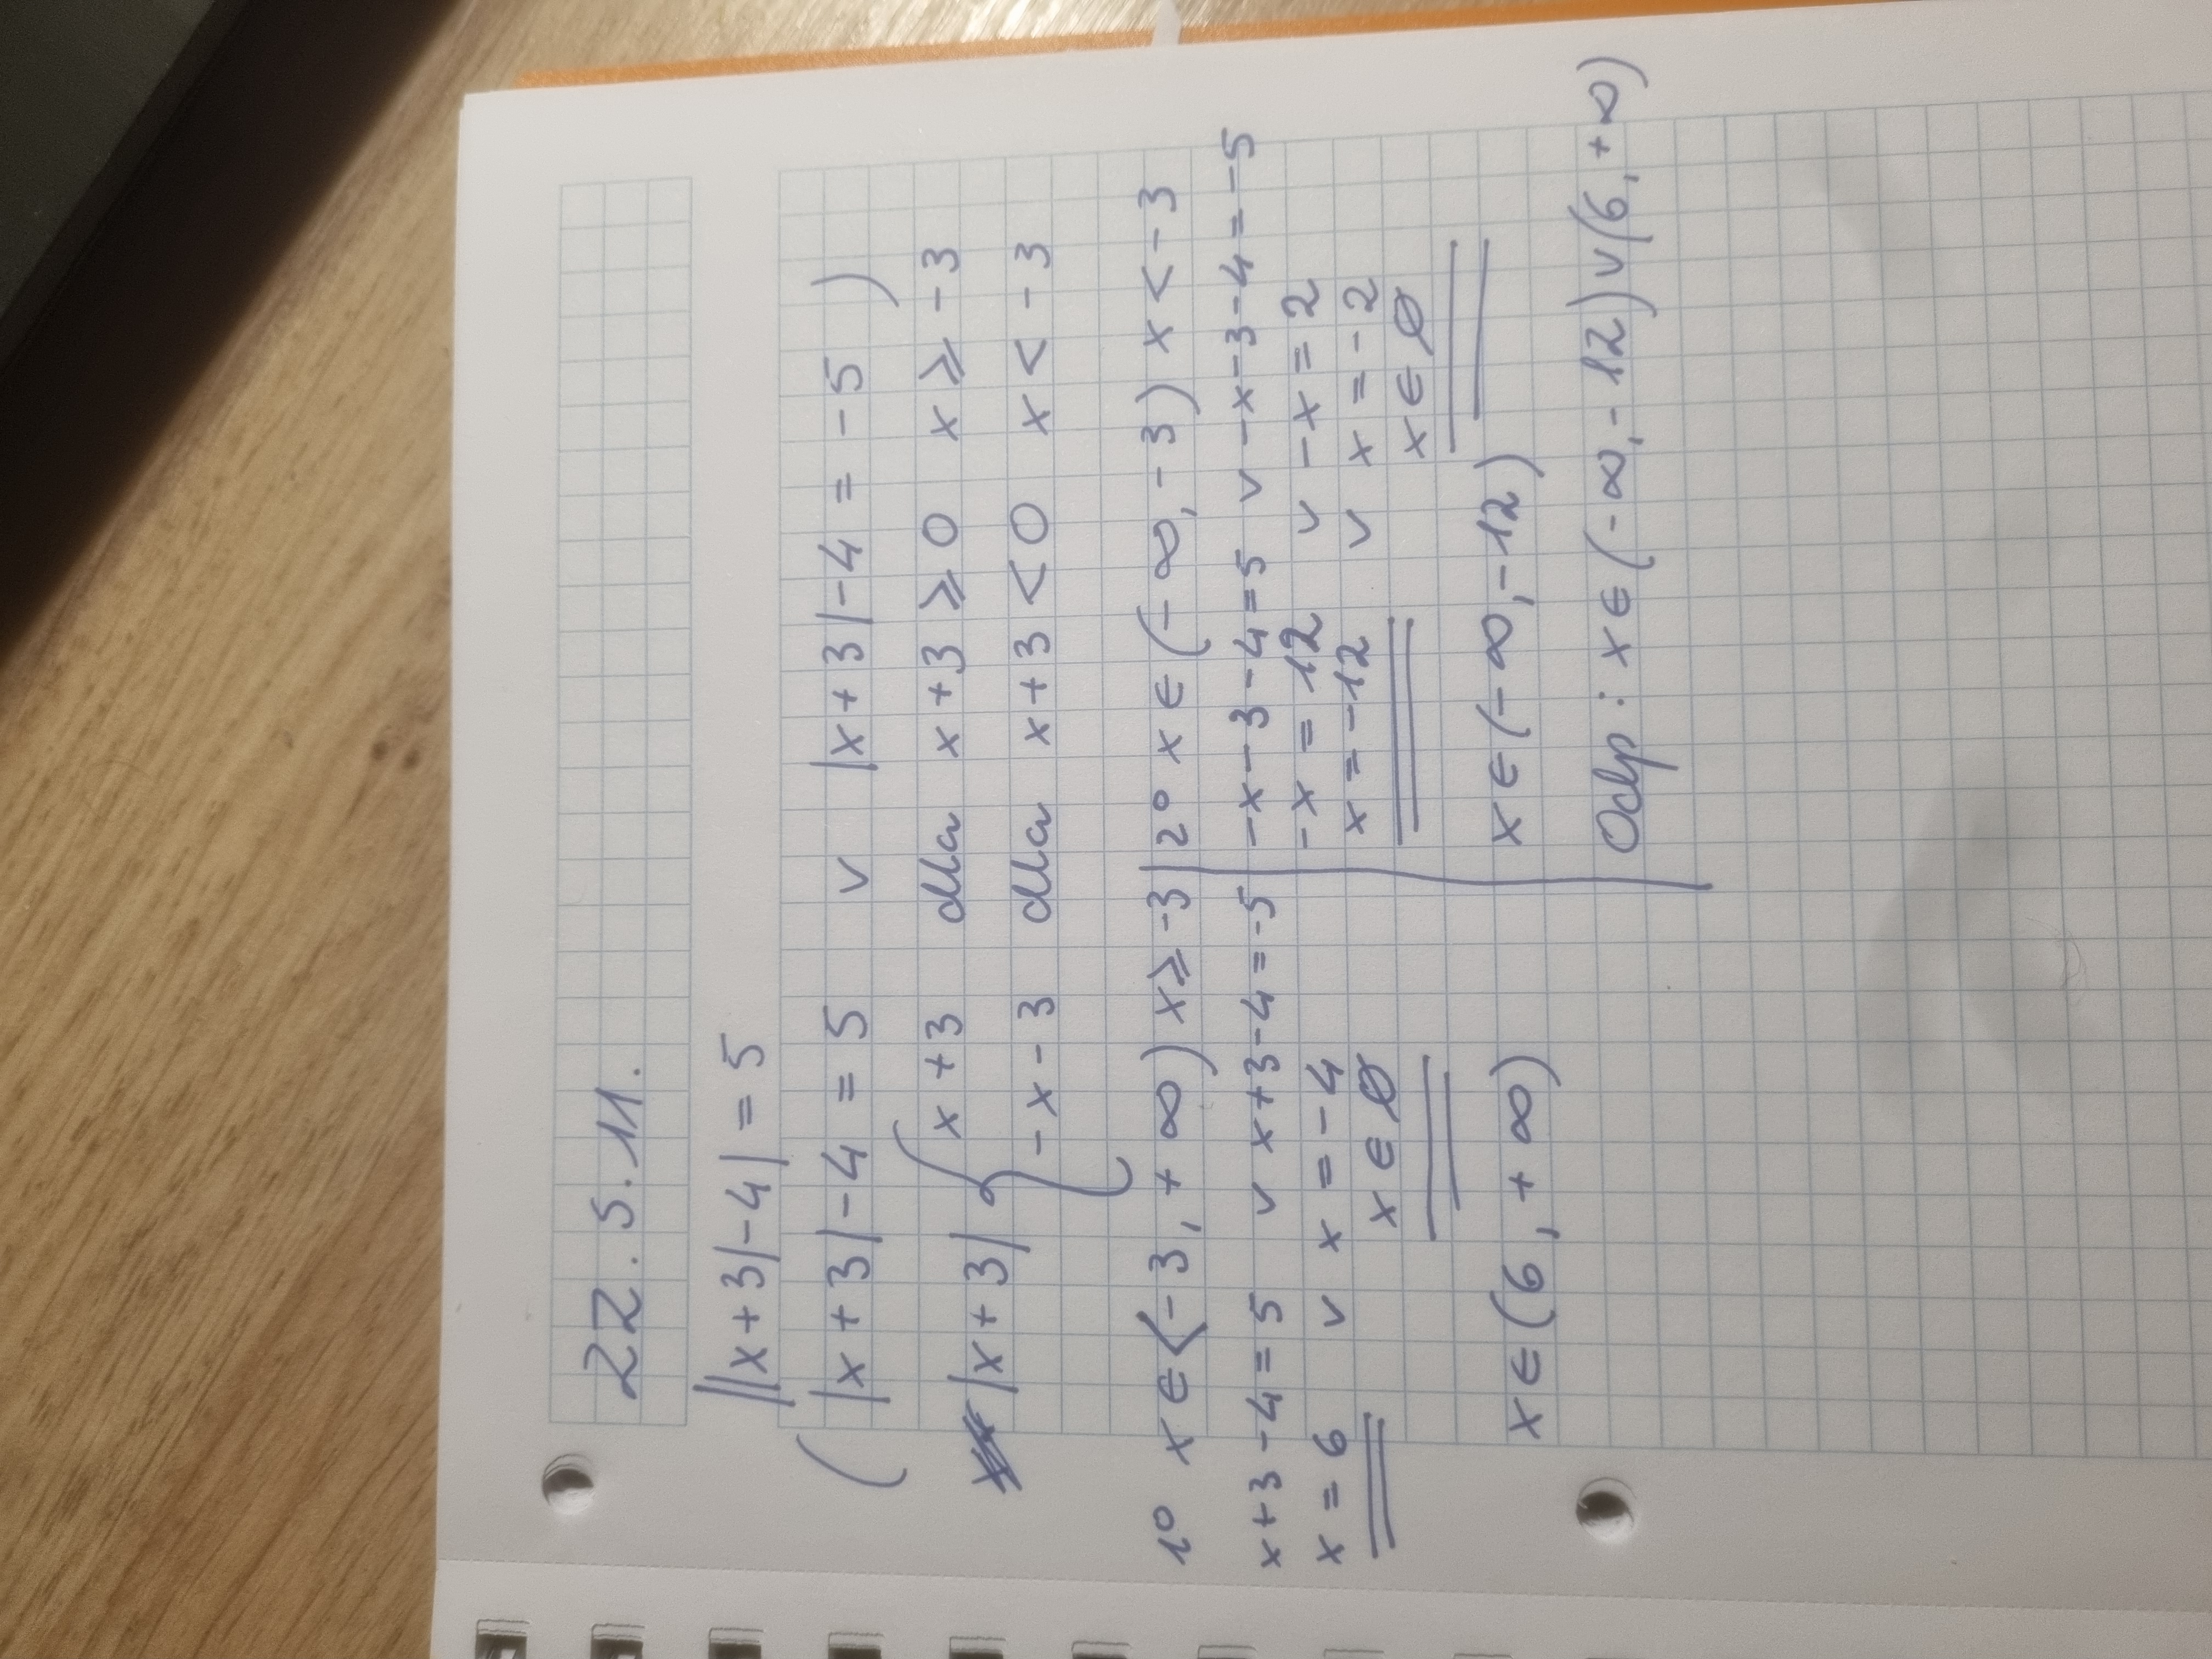 22.5.11.
||x+3|-4| = 5
( |x+3|-4 = 5 v |x+3|-4 = -5 )
|x+3| { x+3 dla x+3 ⩾ 0 x ⩾ -3
-x-3 dla x+3 < 0 x < -3
1° x ∈ <-3, +∞) x ⩾ -3
x+3-4=5 v x+3-4=-5
x = 6 v x = -4
x ∈ ∅
x ∈ (6, +∞)
2° x ∈ (-∞, -3) x < -3
-x-3-4=5 v -x-3-4=-5
-x = 12 v -x = 2
x = -12 v x = -2
x ∈ ∅
x ∈ (-∞, -12)
Odp: x ∈ (-∞, -12) v (6, +∞)